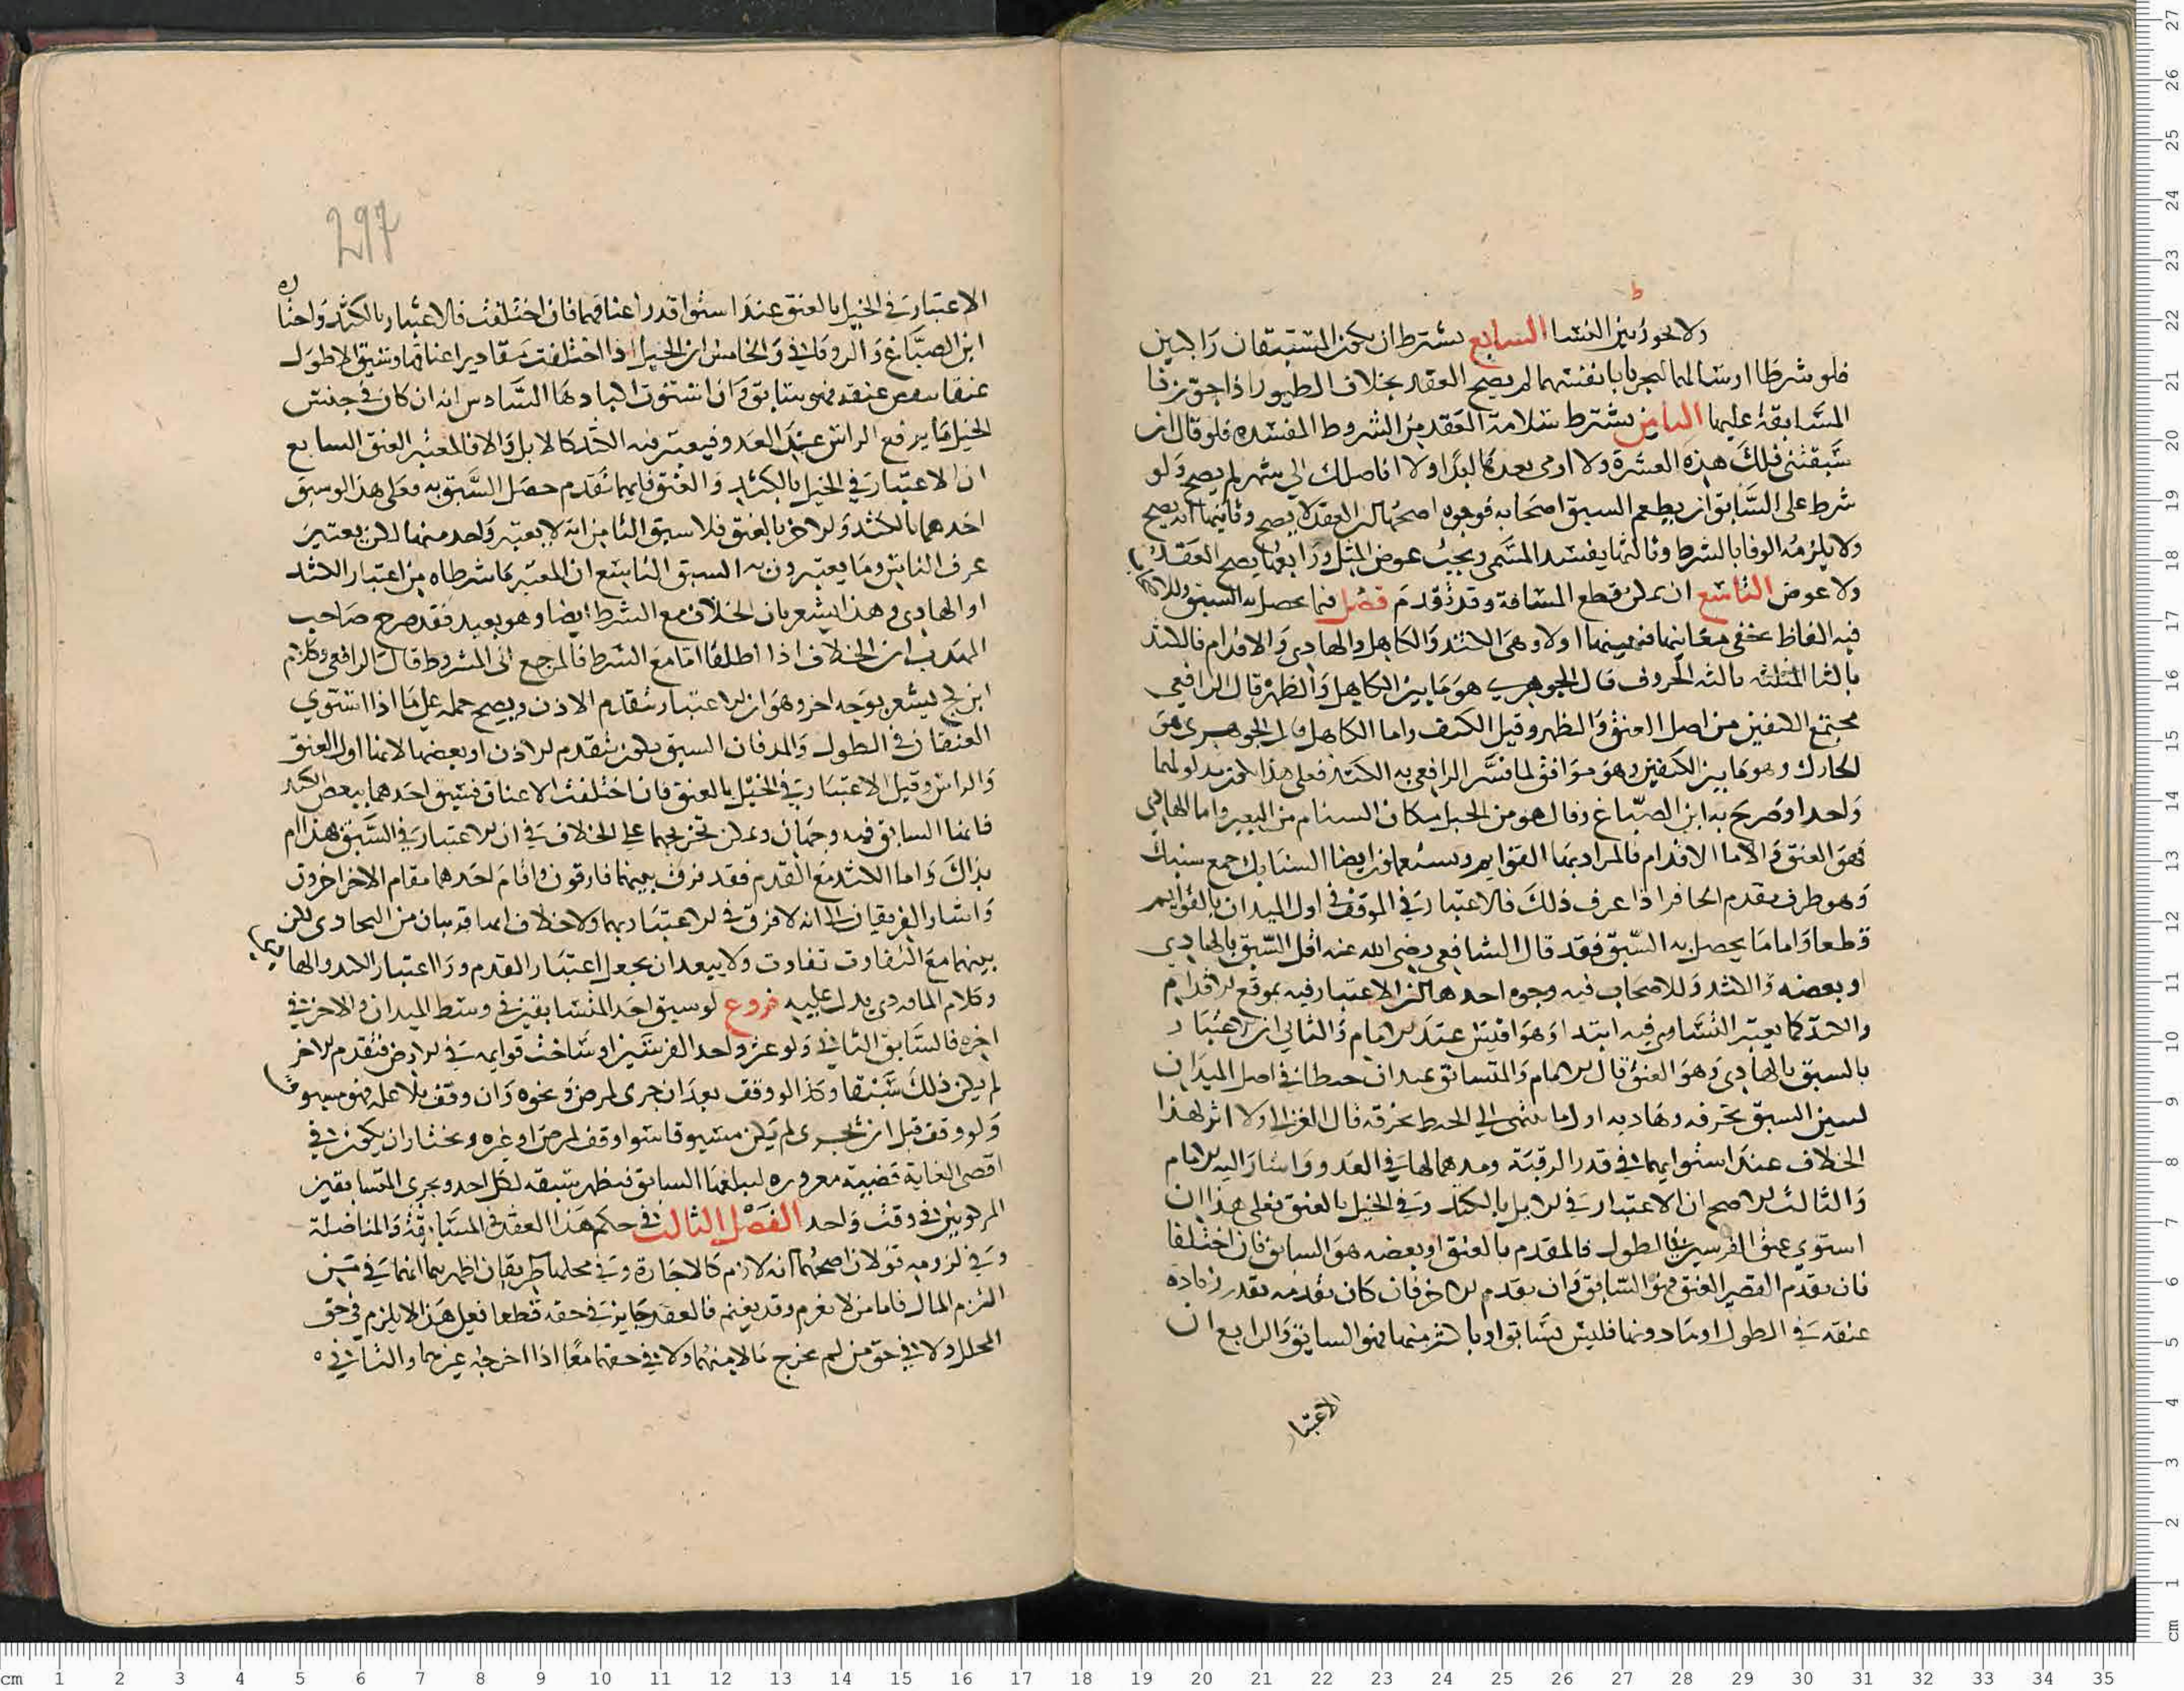 ولا يجوز بين النسا السابع يشترط ان يكون المستبقان راكبين
فلو شرطا ارسالهما ليجريا بانفسهما لم يصح العقد بخلاف الطيور اذا جوزنا
المسابقة عليها الثامن يشترط سلامة العقد من الشروط المفسده فلو قال ان
سبقتني فلك هذه العشرة ولا ارمي بعدها ابدا اولا اناضلك الي شهر لم يصح ولو
شرط على السابق ان يطعم السبق اصحابه فوجوه اصحها ان العقد لا يصح وثانيها انه يصح
ولا يلزمه الوفا بالشرط وثالثها يفسد المسمى ويجب عوض المثل ورابعها يصح العقد
ولا عوض التاسع ان يمكن قطع المسافة وقد تقدم فصل فيما يحصل به السبق وللاصحاب
فيه الفاظ يخفى معانيها فنبينها اولا وهى الكتد والكاهل والهادى والاقدام فالكتد
بالتا المثلثه بالثه الحروف قال الجوهري هو ما بين الكاهل والظهر قال الرافعي
مجتمع الكتفين من اصل العنق والظهر وقيل الكتف واما الكاهل قال الجوهري هو
الحارك وهو ما بين الكتفين وهو موافق لما فسر الرافعي به الكتد فعلى هذا مدلولهما
واحد وصرح به ابن الصباغ وقال هو من الخيل مكان السنام من البعير واما الهادي
فهو العنق واما الاقدام فالمراد بها القوايم ويستعملون ايضا السنابك جمع سنبك
وهو طرف مقدم الحافر اذا عرف ذلك فالاعتبار في الموقف في اول الميدان بالقوايم
قطعا واما ما يحصل به السبق فقد قال الشافعي رضى الله عنه اقل السبق بالهادي
او بعضه والكتد وللاصحاب فيه وجوه احدها ان الاعتبار فيه بموقع الاقدام
والكتد كما يعتبر التساوي فيه ابتدا وهو اقيس عند الامام والثاني ان الاعتبار
بالسبق بالهادي وهو العنق قال الامام والمتسابقون يمدان خيطا في اصل الميدان
ليبين السبق بخرقه وهاديه اول ما ينتهى الي الخيط يخرقه قال الغزالي ولا اثر لهذا
الخلاف عند استوايهما في قدر الرقبة ومدهما لها في العدو واشار اليه الامام
والثالث الاصح ان الاعتبار في الابل بالكتد وفي الخيل بالعنق فعلى هذا ان
استوي عنق الفرسين في الطول فالمقدم بالعنق او بعضه هو السابق فان اختلفا
فان تقدم القصير العنق فهو السابق وان تقدم الاخر فان كان تقدمه بقدر زيادة
عنقه في الطول او بما دونها فليس بسابق او باكثر منها فهو السابق والرابع ان
الاعتبار
297
الاعتبار في الخيل بالعنق عند استوا قدر اعناقها فان اختلفت فالاعتبار بالكتد واختاره
ابن الصباغ والروياني والخامس ان الخيل اذا اختلفت مقادير اعناقها وسبق الاطول
عنقا ببعض عنقه فهو سابق وان استوت اكبادها السادس انه ان كان في جنس
الخيل ما يرفع الراس عند العدو فيعتبر فيه الكتد كالابل والا فالمعتبر العنق السابع
ان الاعتبار في الخيل بالكتد والعنق فايهما تقدم حصل السبق به فعلى هذا لو سبق
احدهما بالكتد والاخر بالعنق فلا سبق الثامن انه لا يعتبر واحد منهما لكن يعتبر
عرف الناس وما يعتبرون به السبق التاسع ان المعتبر ما شرطاه من اعتبار الكتد
او الهادي وهذا يشعر بان الخلاف مع الشرط ايضا وهو بعيد فقد صرح صاحب
المهذب ان الخلاف اذا اطلقا اما مع الشرط فالمرجع الى المشروط قال الرافعي وكلام
ابن كج يشعر بوجه اخر وهو ان الاعتبار بتقدم الاذن ويصح حمله على ما اذا استوي
العنقان في الطول والمد فان السبق يكون بتقدم الاذن او بعضها لانها اول العنق
والراس وقيل الاعتبار في الخيل بالعنق فان اختلفت الاعناق فسبق احدهما ببعض الكتد
فايهما السابق فيه وجهان ويمكن تخريجهما على الخلاف في ان الاعتبار في السبق بهذا ام
بذاك واما الكتد مع القدم فقد فرق بينهما فارقون واقام احدهما مقام الاخر اخرون
واشار الفريقان الى انه لا فرق في الاعتبار بهما ولا خلاف انهما قريبان من التحاذي لكن
بينهما مع التفاوت تفاوت ولا يبعد ان يجعل اعتبار القدم ورا اعتبار الكتد والهادي
وكلام الماوردي يدل عليه فروع لو سبق احد المتسابقين في وسط الميدان والاخر في
اخره فالسابق الثاني ولو عثر واحد الفرسين او ساخت قوايمه في الارض فتقدم الاخر
لم يكن ذلك سبقا وكذا لو وقف بعد ان جرى لمرض ونحوه وان وقف بلا علة فهو مسبوق
ولو وقف قبل ان يجري لم يكن مسبوقا سوا وقف لمرض او غيره ويختار ان يكون في
اقصى الغاية قصبة مغروزه ليبلغها السابق فيظهر سبقه لكل احد ويجري المتسابقين
المركوبين في وقت واحد الفصل الثالث في حكم هذا العقد في المسابقة والمناضلة
وفي لزومه قولان اصحهما انه لازم كالاجارة وفي محلهما طريقان اظهرهما انهما في من
التزم المال فاما من لا يغرم وقد يغنم فالعقد جايز في حقه قطعا فعلى هذا لا يلزم في حق
المحلل ولا في حق من لم يخرج مالا منهما ولا في حقهما معا اذا اخرجه غيرهما والثاني